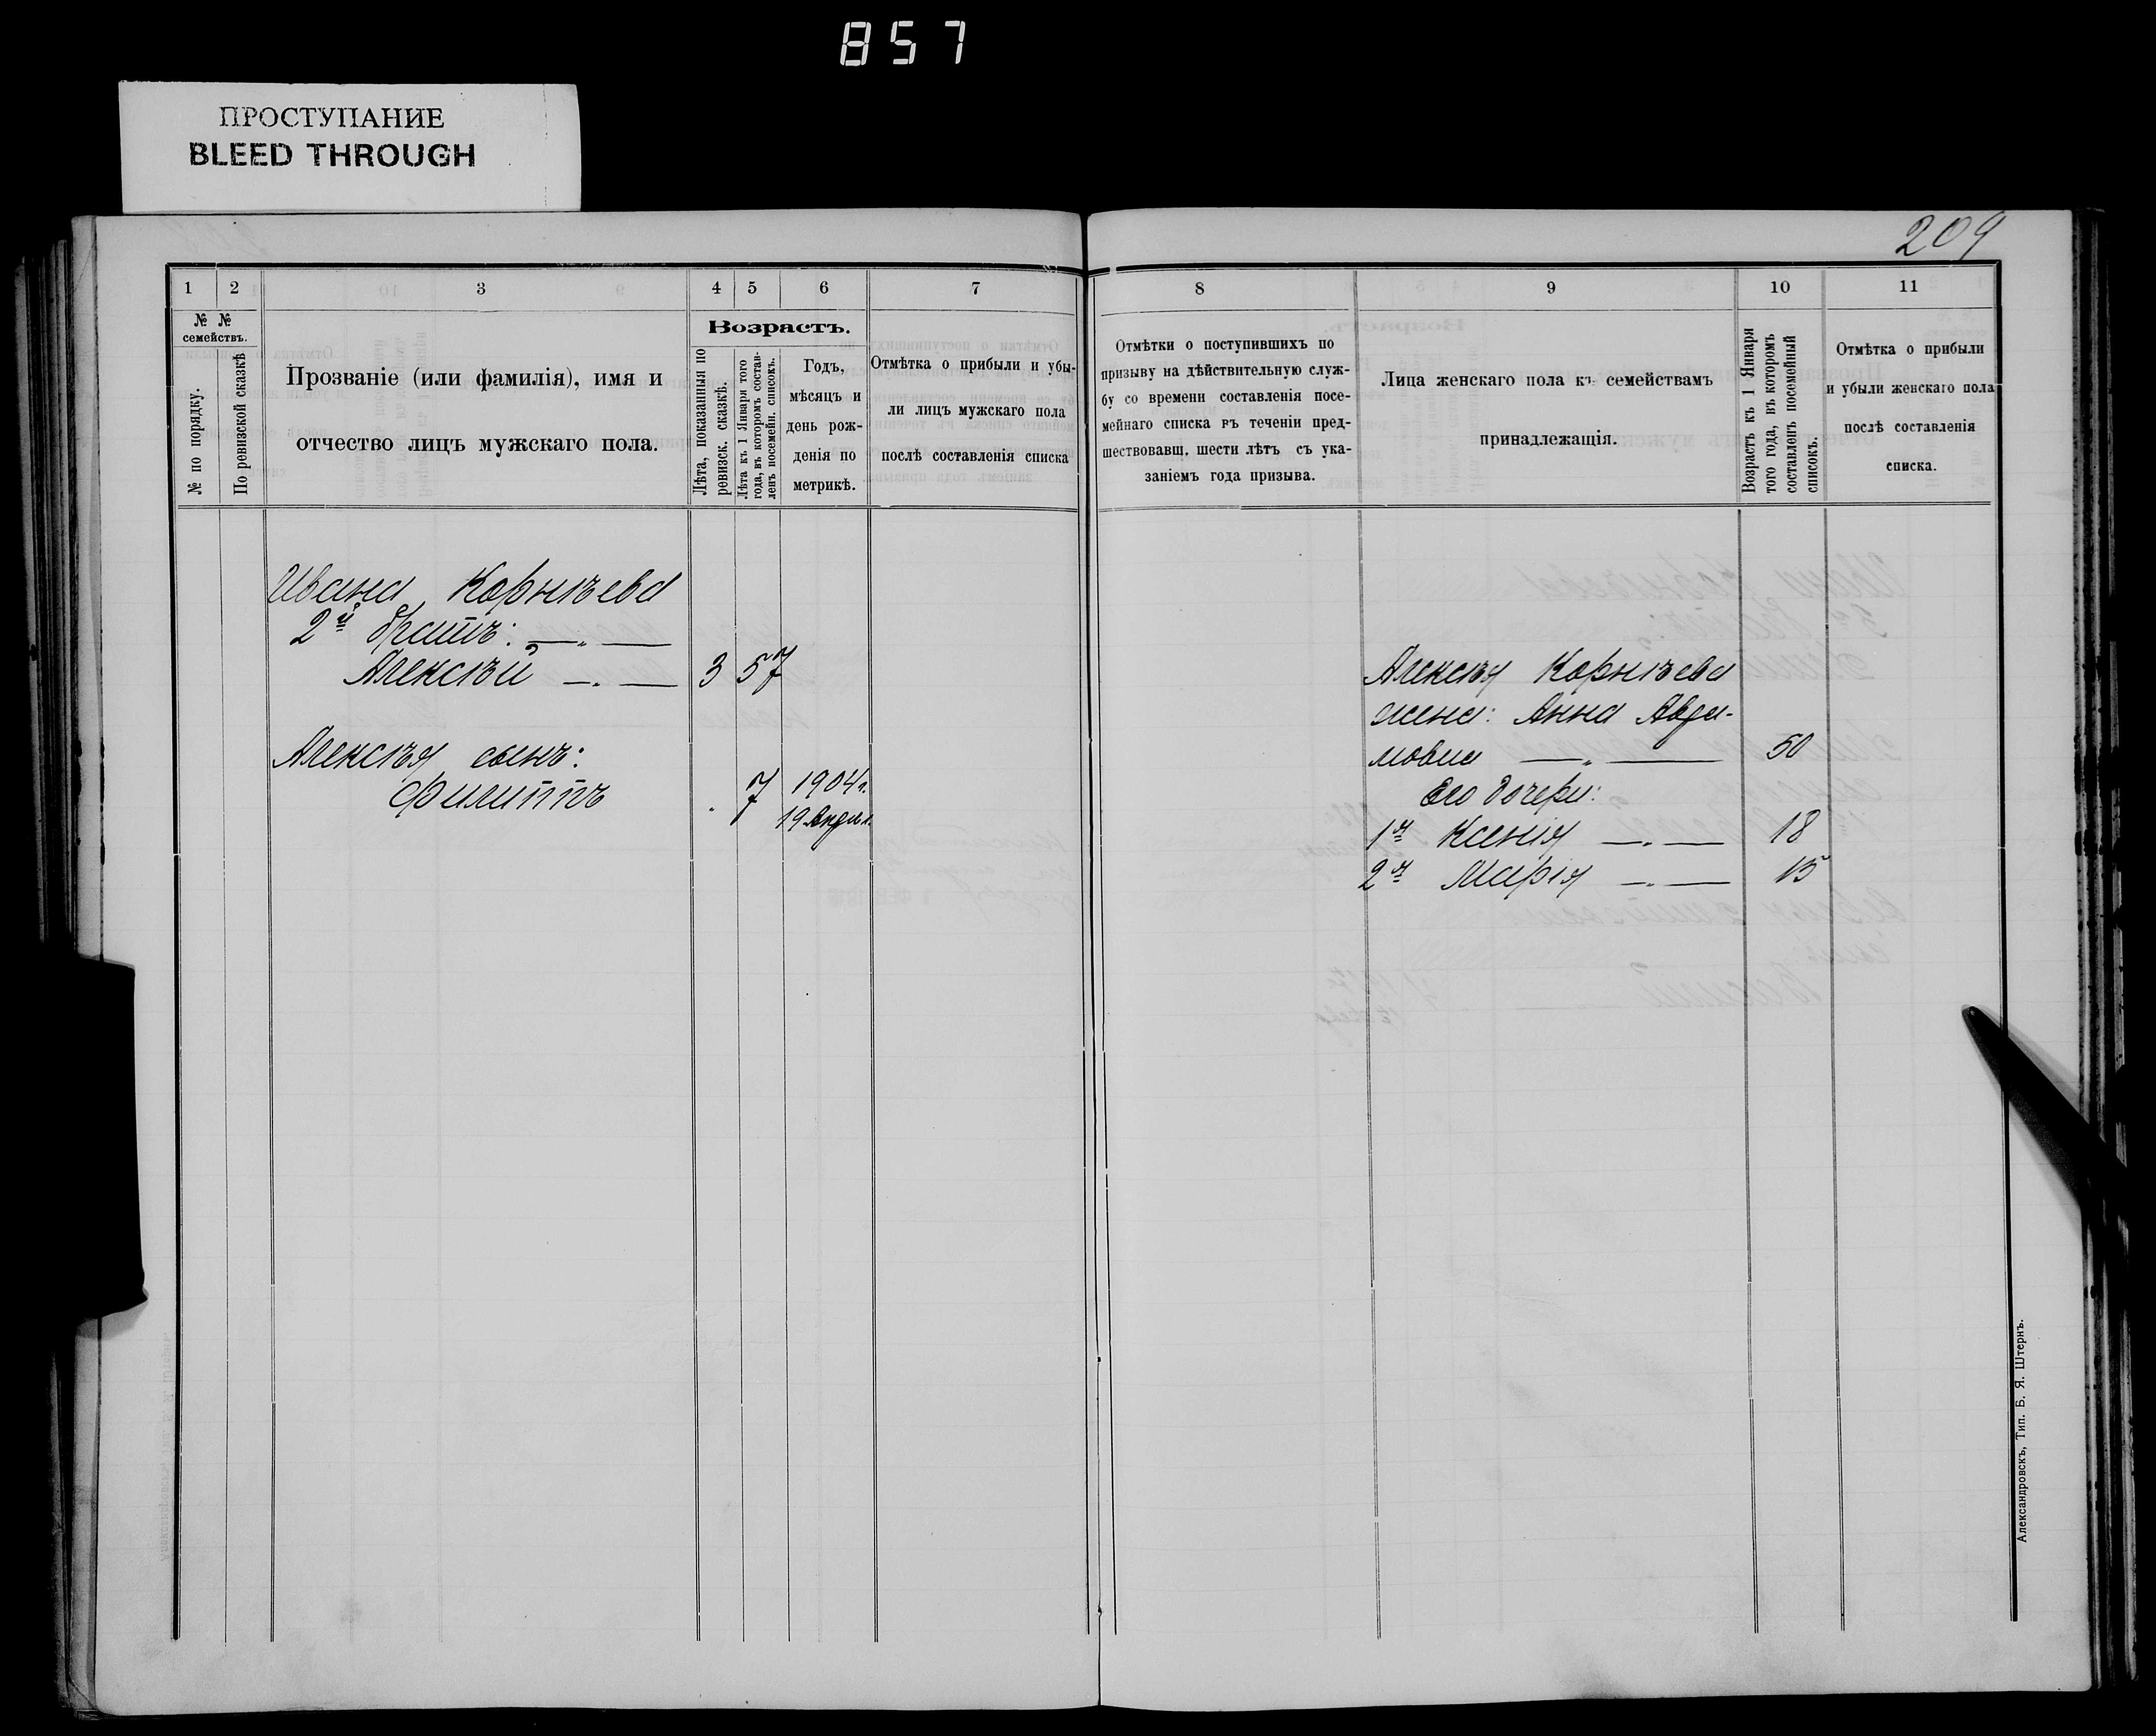 857
ПРОСТУПАНИЕ
BLEED THROUGH
209
1 2 3 4 5 6 7 8 9 10 11
№ №
семействъ.
№ по порядку.
По ревизской сказкѣ
Прозваніе (или фамилія), имя и
отчество лицъ мужскаго пола.
Возрастъ.
Лѣта, показанныя по
ревизск. сказкѣ.
Лѣта къ 1 Января того
года, въ которомъ состав-
ленъ посемейн. списокъ.
Годъ,
мѣсяцъ и
день рож-
денія по
метрикѣ.
Отмѣтка о прибыли и убы-
ли лицъ мужскаго пола
послѣ составленія списка
Отмѣтки о поступившихъ по
призыву на дѣйствительную служ-
бу со времени составленія посе-
мейнаго списка въ теченіи пред-
шествовавщ. шести лѣтъ съ ука-
заніемъ года призыва.
Лица женскаго пола къ семействамъ
принадлежащія.
Возрастъ къ 1 Января
того года, въ которомъ
составленъ посемейный
списокъ.
Отмѣтка о прибыли
и убыли женскаго пола
послѣ составленія
списка.
Ивана Корнѣева
2й братъ: — „ —
Алексѣй — „ — 3 57
Алексѣя сынъ:
Филиппъ . 7 1904 г.
19
Алексѣя Корнѣева
жена: Анна Авди-
мовна — „ — 50
Его дочери:
1я Ксенія — „ — 18
2я Марія — „ — 15
Александровскъ, Тип. Б. Я. Штернъ.